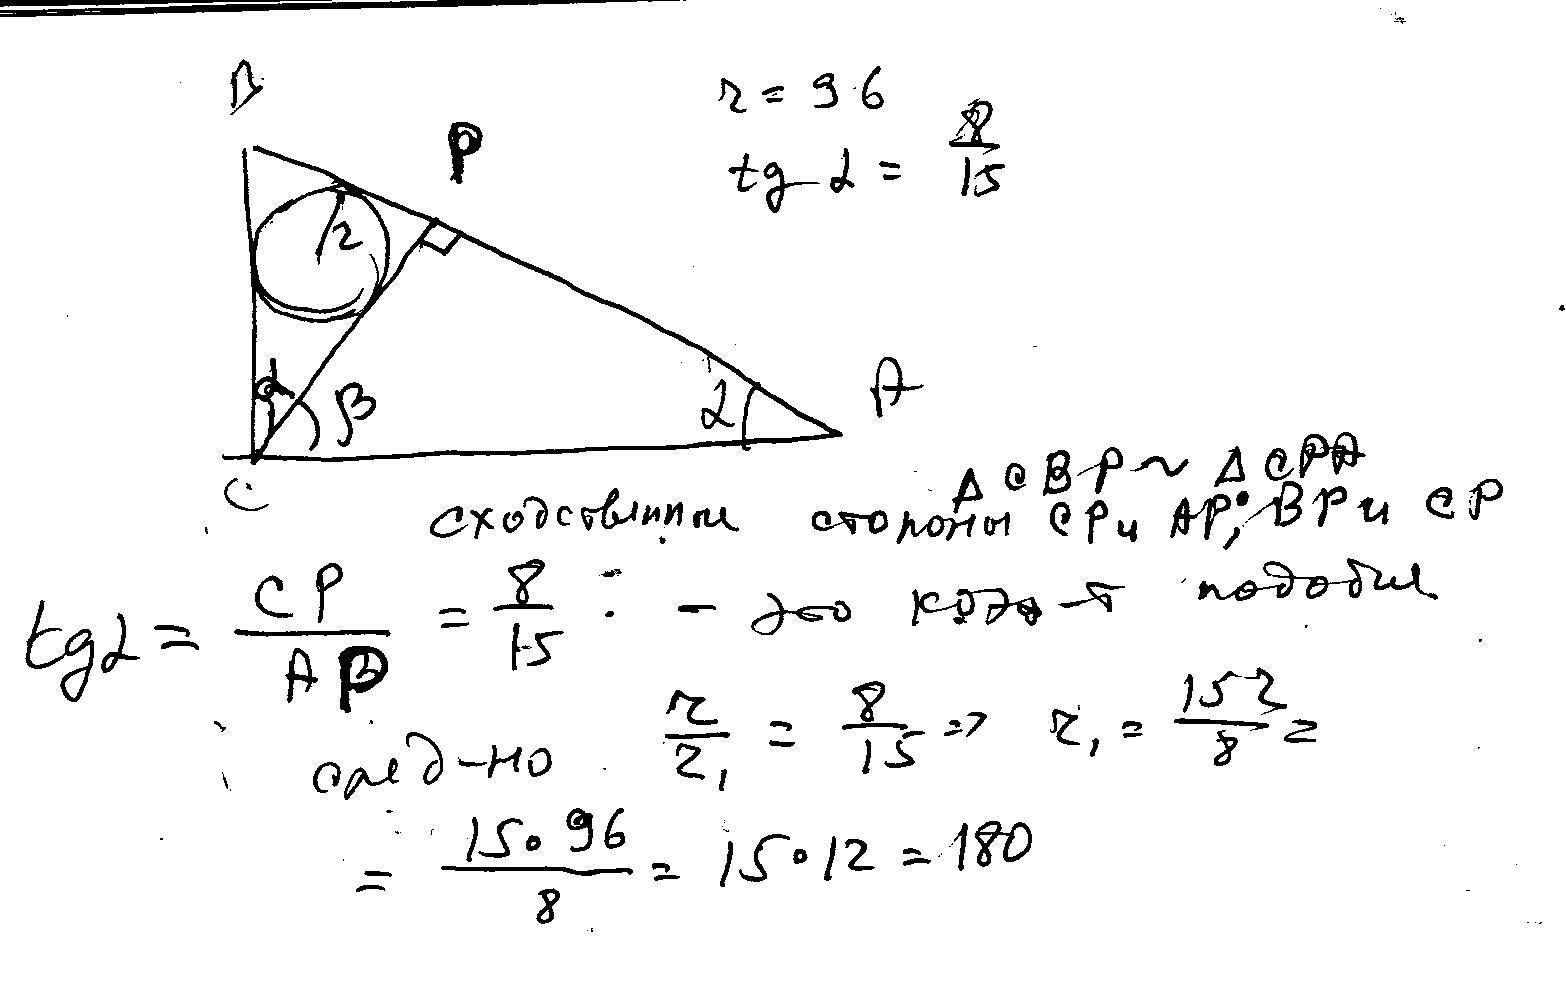 B
P
r = 96
tg α = 8/15
r
α
β
α
A
C
Δ CBP ~ Δ CPA
сходственные стороны CP и AP; BP и CP
tg α = CP/AP = 8/15 : - это коэф-т подобия
след-но r/r₁ = 8/15 => r₁ = 15r/8 =
= 15∘96/8 = 15∘12 = 180